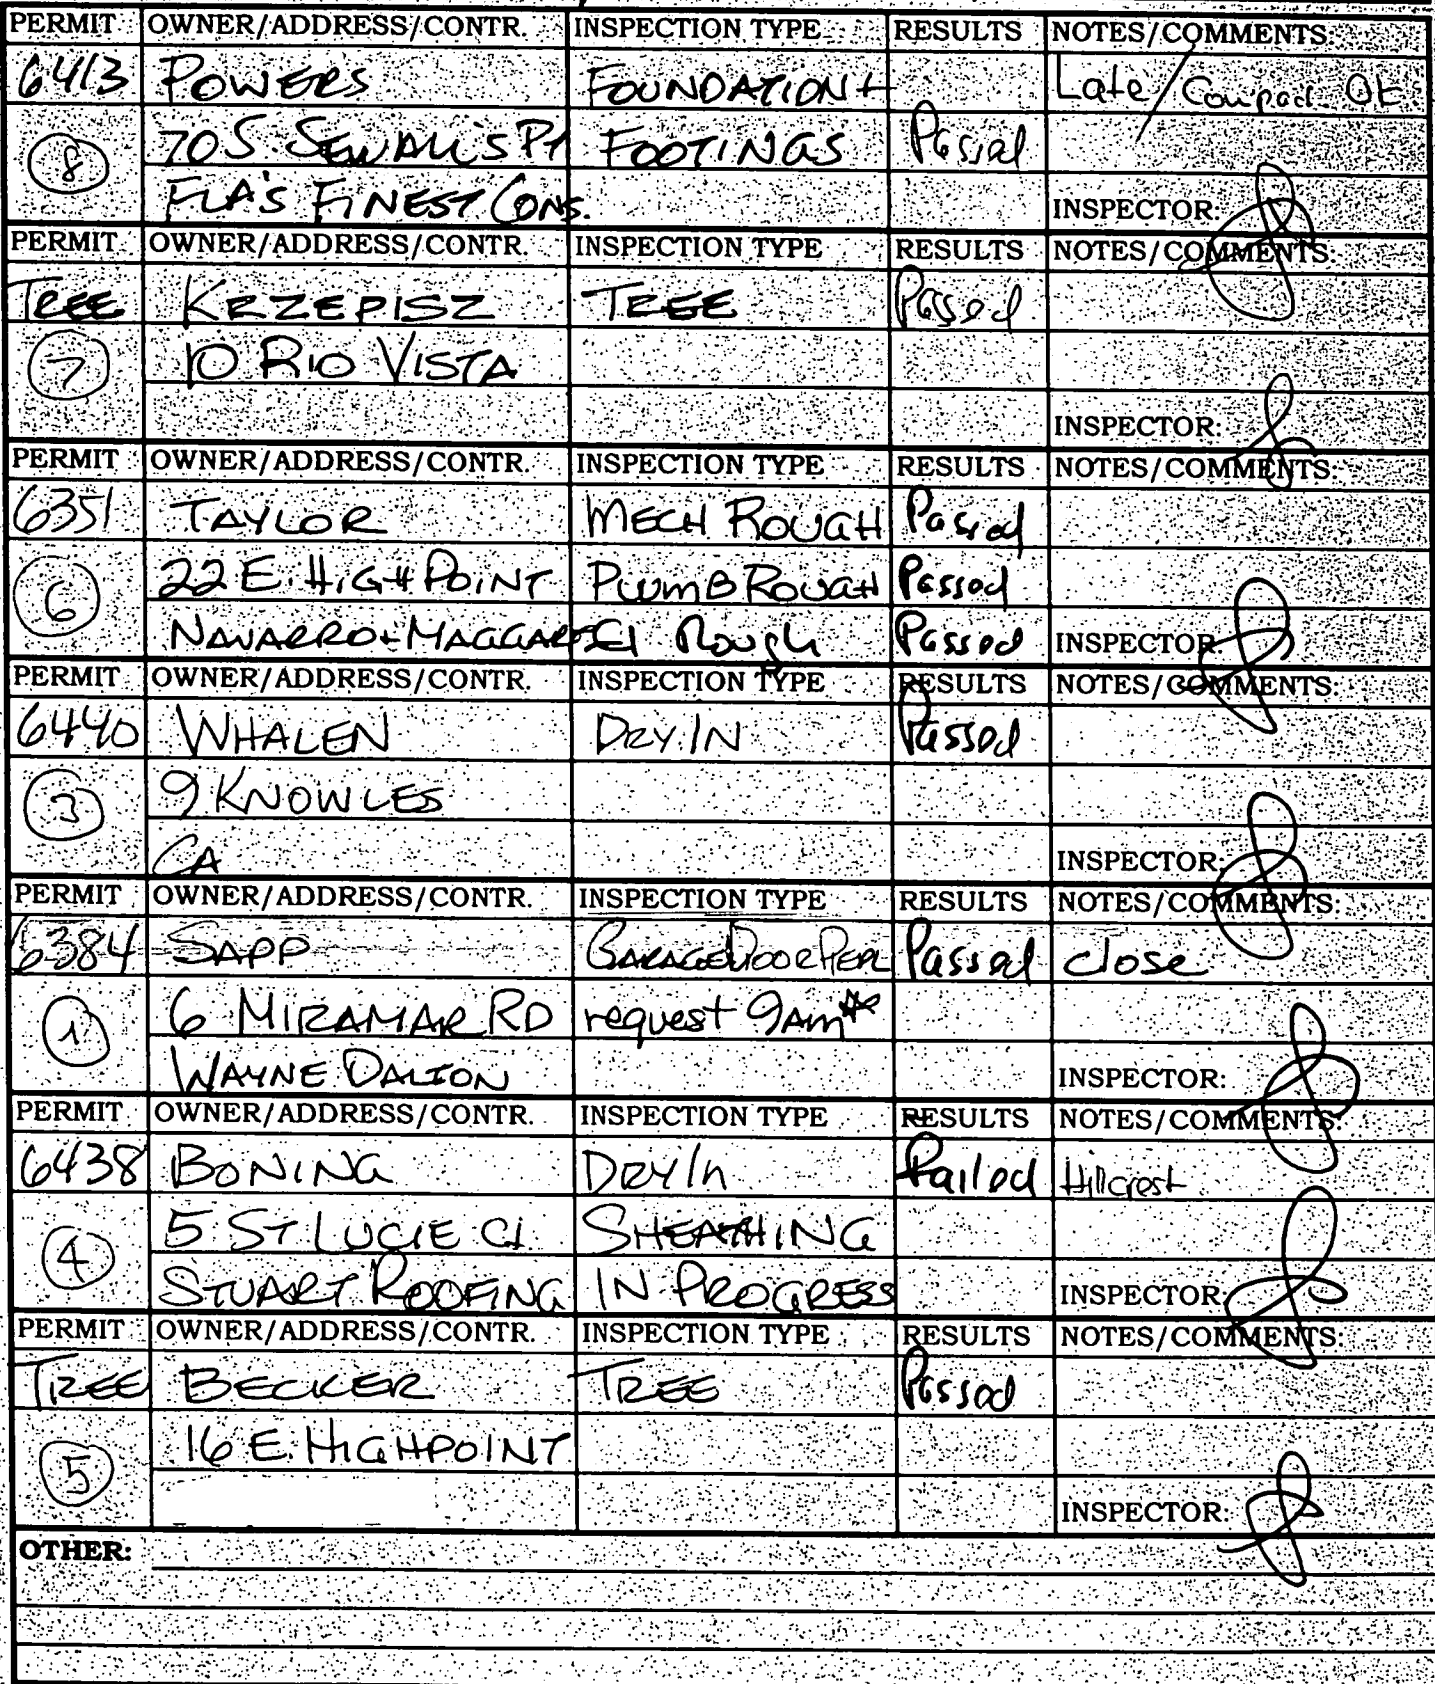 PERMIT OWNER/ADDRESS/CONTR. INSPECTION TYPE RESULTS NOTES/COMMENTS:
6413 POWERS FOUNDATION + Late/Compact OK
8 70 S. SEWALL'S PT FOOTINGS Passed
FLA'S FINEST CONS. INSPECTOR:
PERMIT OWNER/ADDRESS/CONTR. INSPECTION TYPE RESULTS NOTES/COMMENTS:
TREE KRZEPISZ TREE Passed
7 10 RIO VISTA
INSPECTOR:
PERMIT OWNER/ADDRESS/CONTR. INSPECTION TYPE RESULTS NOTES/COMMENTS:
6351 TAYLOR MECH ROUGH Passed
6 22 E. HIGH POINT PLUMB ROUGH Passed
NAVARRO + El Rough Passed INSPECTOR:
PERMIT OWNER/ADDRESS/CONTR. INSPECTION TYPE RESULTS NOTES/COMMENTS:
6440 WHALEN DRY IN Passed
3 9 KNOWLES
CA INSPECTOR:
PERMIT OWNER/ADDRESS/CONTR. INSPECTION TYPE RESULTS NOTES/COMMENTS:
6384 SAPP GARAGE DOOR REPL Passed close
1 6 MIRAMAR RD request 9AM
WAYNE DALTON INSPECTOR:
PERMIT OWNER/ADDRESS/CONTR. INSPECTION TYPE RESULTS NOTES/COMMENTS:
6438 BONING DRY In Failed Hillcrest
4 5 ST LUCIE Ct SHEATHING
STUART ROOFING IN PROGRESS INSPECTOR:
PERMIT OWNER/ADDRESS/CONTR. INSPECTION TYPE RESULTS NOTES/COMMENTS:
TREE BECKER TREE Passed
5 16 E. HIGHPOINT
INSPECTOR:
OTHER: